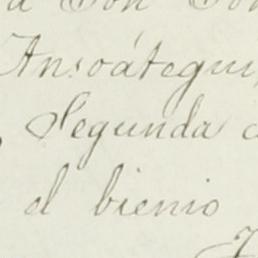 Con
Ansoátegui
Segunda
el bienio